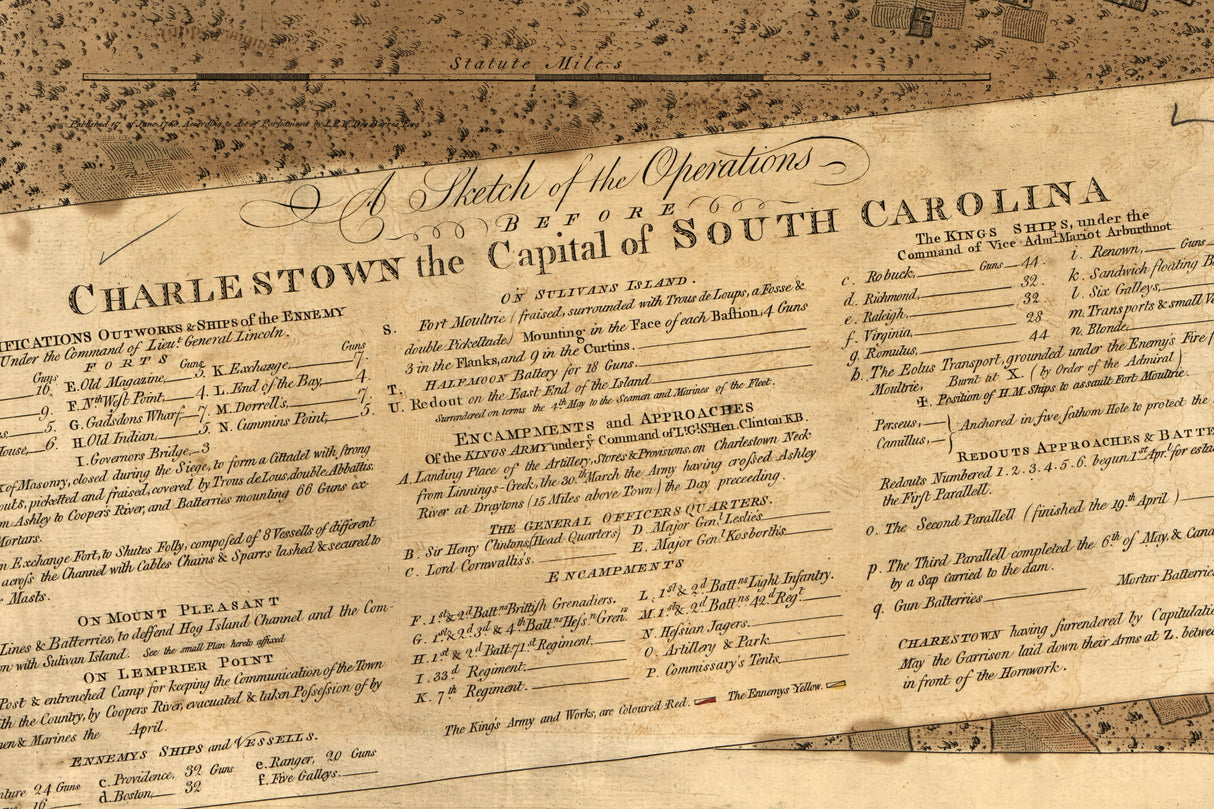 Statute Miles
1
1
2
Published 17th of June 1780. According to Act of Parliament by J.F.W. Des Barres Esq.
A Sketch of the Operations
BEFORE
CHARLESTOWN the Capital of SOUTH CAROLINA
IFICATIONS OUTWORKS & SHIPS of the ENNEMY
Under the Command of Lieut. General Lincoln.
FORTS
Guns
16.
9.
5.
House, 6.
Guns
E. Old Magazine, 5.
F. Nth West Point, 4.
G. Gadsdons Wharf 7.
H. Old Indian, 5.
I. Governors Bridge, 3
Guns
K. Exchange, 7.
L. End of the Bay, 4.
M. Dorrell's, 7.
N. Cummins Point, 5.
k of Masonry, closed during the Siege, to form a Cittadel with strong
outs, picketted and fraised, covered by Trous de Lous, double Abbattis.
m Ashley to Cooper's River, and Batterries mounting 66 Guns ex-
Mortars.
n Exchange Fort, to Shutes Folly, composed of 8 Vessells of different
across the Channel with Cables Chains & Sparrs lashed & secured to
Masts.
ON MOUNT PLEASANT
Lines & Batterries, to deffend Hog Island Channel and the Com-
on with Sulivan Island. See the small Plan hereto affixed
ON LEMPRIER POINT
Post & entrenched Camp for keeping the Communication of the Town
th the Country, by Coopers River, evacuated & taken Possession of by
men & Marines the April.
ENNEMYS SHIPS and VESSELLS.
ture 24 Guns
16
c. Providence. 32 Guns
d. Boston, 32
e. Ranger, 20 Guns
f. Five Galleys.
ON SULIVANS ISLAND.
S. Fort Moultrie (fraised, surrounded with Trous de Loups, a Fosse &
double Pickettade) Mounting in the Face of each Bastion, 4 Guns
3 in the Flanks, and 9 in the Curtins.
T. HALFMOON Battery for 18 Guns.
U. Redout on the East End of the Island
Surrendered on terms the 4th May to the Seamen and Marines of the Fleet.
ENCAMPMENTS and APPROACHES
Of the KINGS ARMY under ye Command of Lt. Gl. Sr. Hen. Clinton KB.
A. Landing Place of the Artillery, Stores & Provisions, on Charlestown Neck
from Linnings-Creek, the 30th March the Army having crossed Ashley
River at Draytons (15 Miles above Town) the Day preceeding.
THE GENERAL OFFICERS QUARTERS.
B. Sir Henry Clintons, (Head Quarters)
C. Lord Cornwallis's.
D. Major Genl. Leslie's
E. Major Genl. Kosborths
ENCAMPMENTS
F. 1st & 2d Battns Brittish Grenadiers.
G. 1st & 2d 3d & 4th Battns Hessn Grenrs
H. 1st & 2d Batt: 71st Regiment.
I. 33d Regiment.
K. 7th Regiment.
L. 1st & 2d Battns Light Infantry.
M. 1st & 2d Battns 42d Regt
N. Hessian Jagers.
O. Artillery & Park.
P. Commissary's Tents
The King's Army and Works, are Coloured Red. The Ennemys Yellow.
The KINGS SHIPS, under the
Command of Vice Adml Mariot Arburthnot
c. Robuck, Guns 44.
d. Richmond, 32.
e. Raleigh, 32
f. Virginia, 28
g. Romulus, 44
i. Renown, Guns
k. Sandwich floating B
l. Six Galleys,
m. Transports & small V
n. Blonde.
h. The Eolus Transport, grounded under the Enemy's Fire
Moultrie, Burnt at X. (by Order of the Admiral)
Position of H.M. Ships to assault Fort Moultrie.
Perseus,
Camillus,
Anchored in five fathom Hole to protect the
REDOUTS APPROACHES & BATTE
Redouts Numbered 1. 2. 3. 4. 5. 6. begun 1st Apr. for estab
the First Parallell.
o. The Second Parallell (finished the 19th April)
p. The Third Parallell completed the 6th of May, & Cana
by a Sap carried to the dam.
q. Gun Batterries
Mortar Batterries
CHARESTOWN having surrendered by Capitulati
May the Garrison laid down their Arms at Z. betwe
in front of the Hornwork.